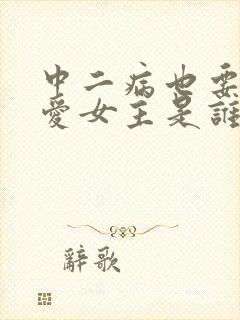 中二病也要
愛女主是誰
辭歌